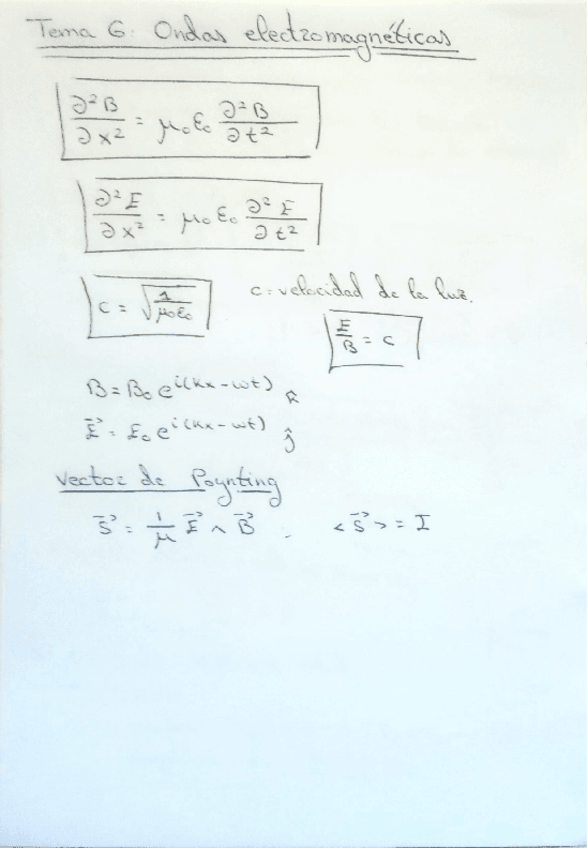 Tema 6: Ondas electromagnéticas
∂²B/∂x² = μ₀ε₀ ∂²B/∂t²
∂²E/∂x² = μ₀ε₀ ∂²E/∂t²
c = √(1/μ₀ε₀) c: velocidad de la luz.
E/B = c
B = B₀ e^{i(kx-ωt)} k̂
E⃗ = E₀ e^{i(kx-ωt)} ĵ
Vector de Poynting
S⃗ = 1/μ E⃗ ∧ B⃗ . <S⃗> = I